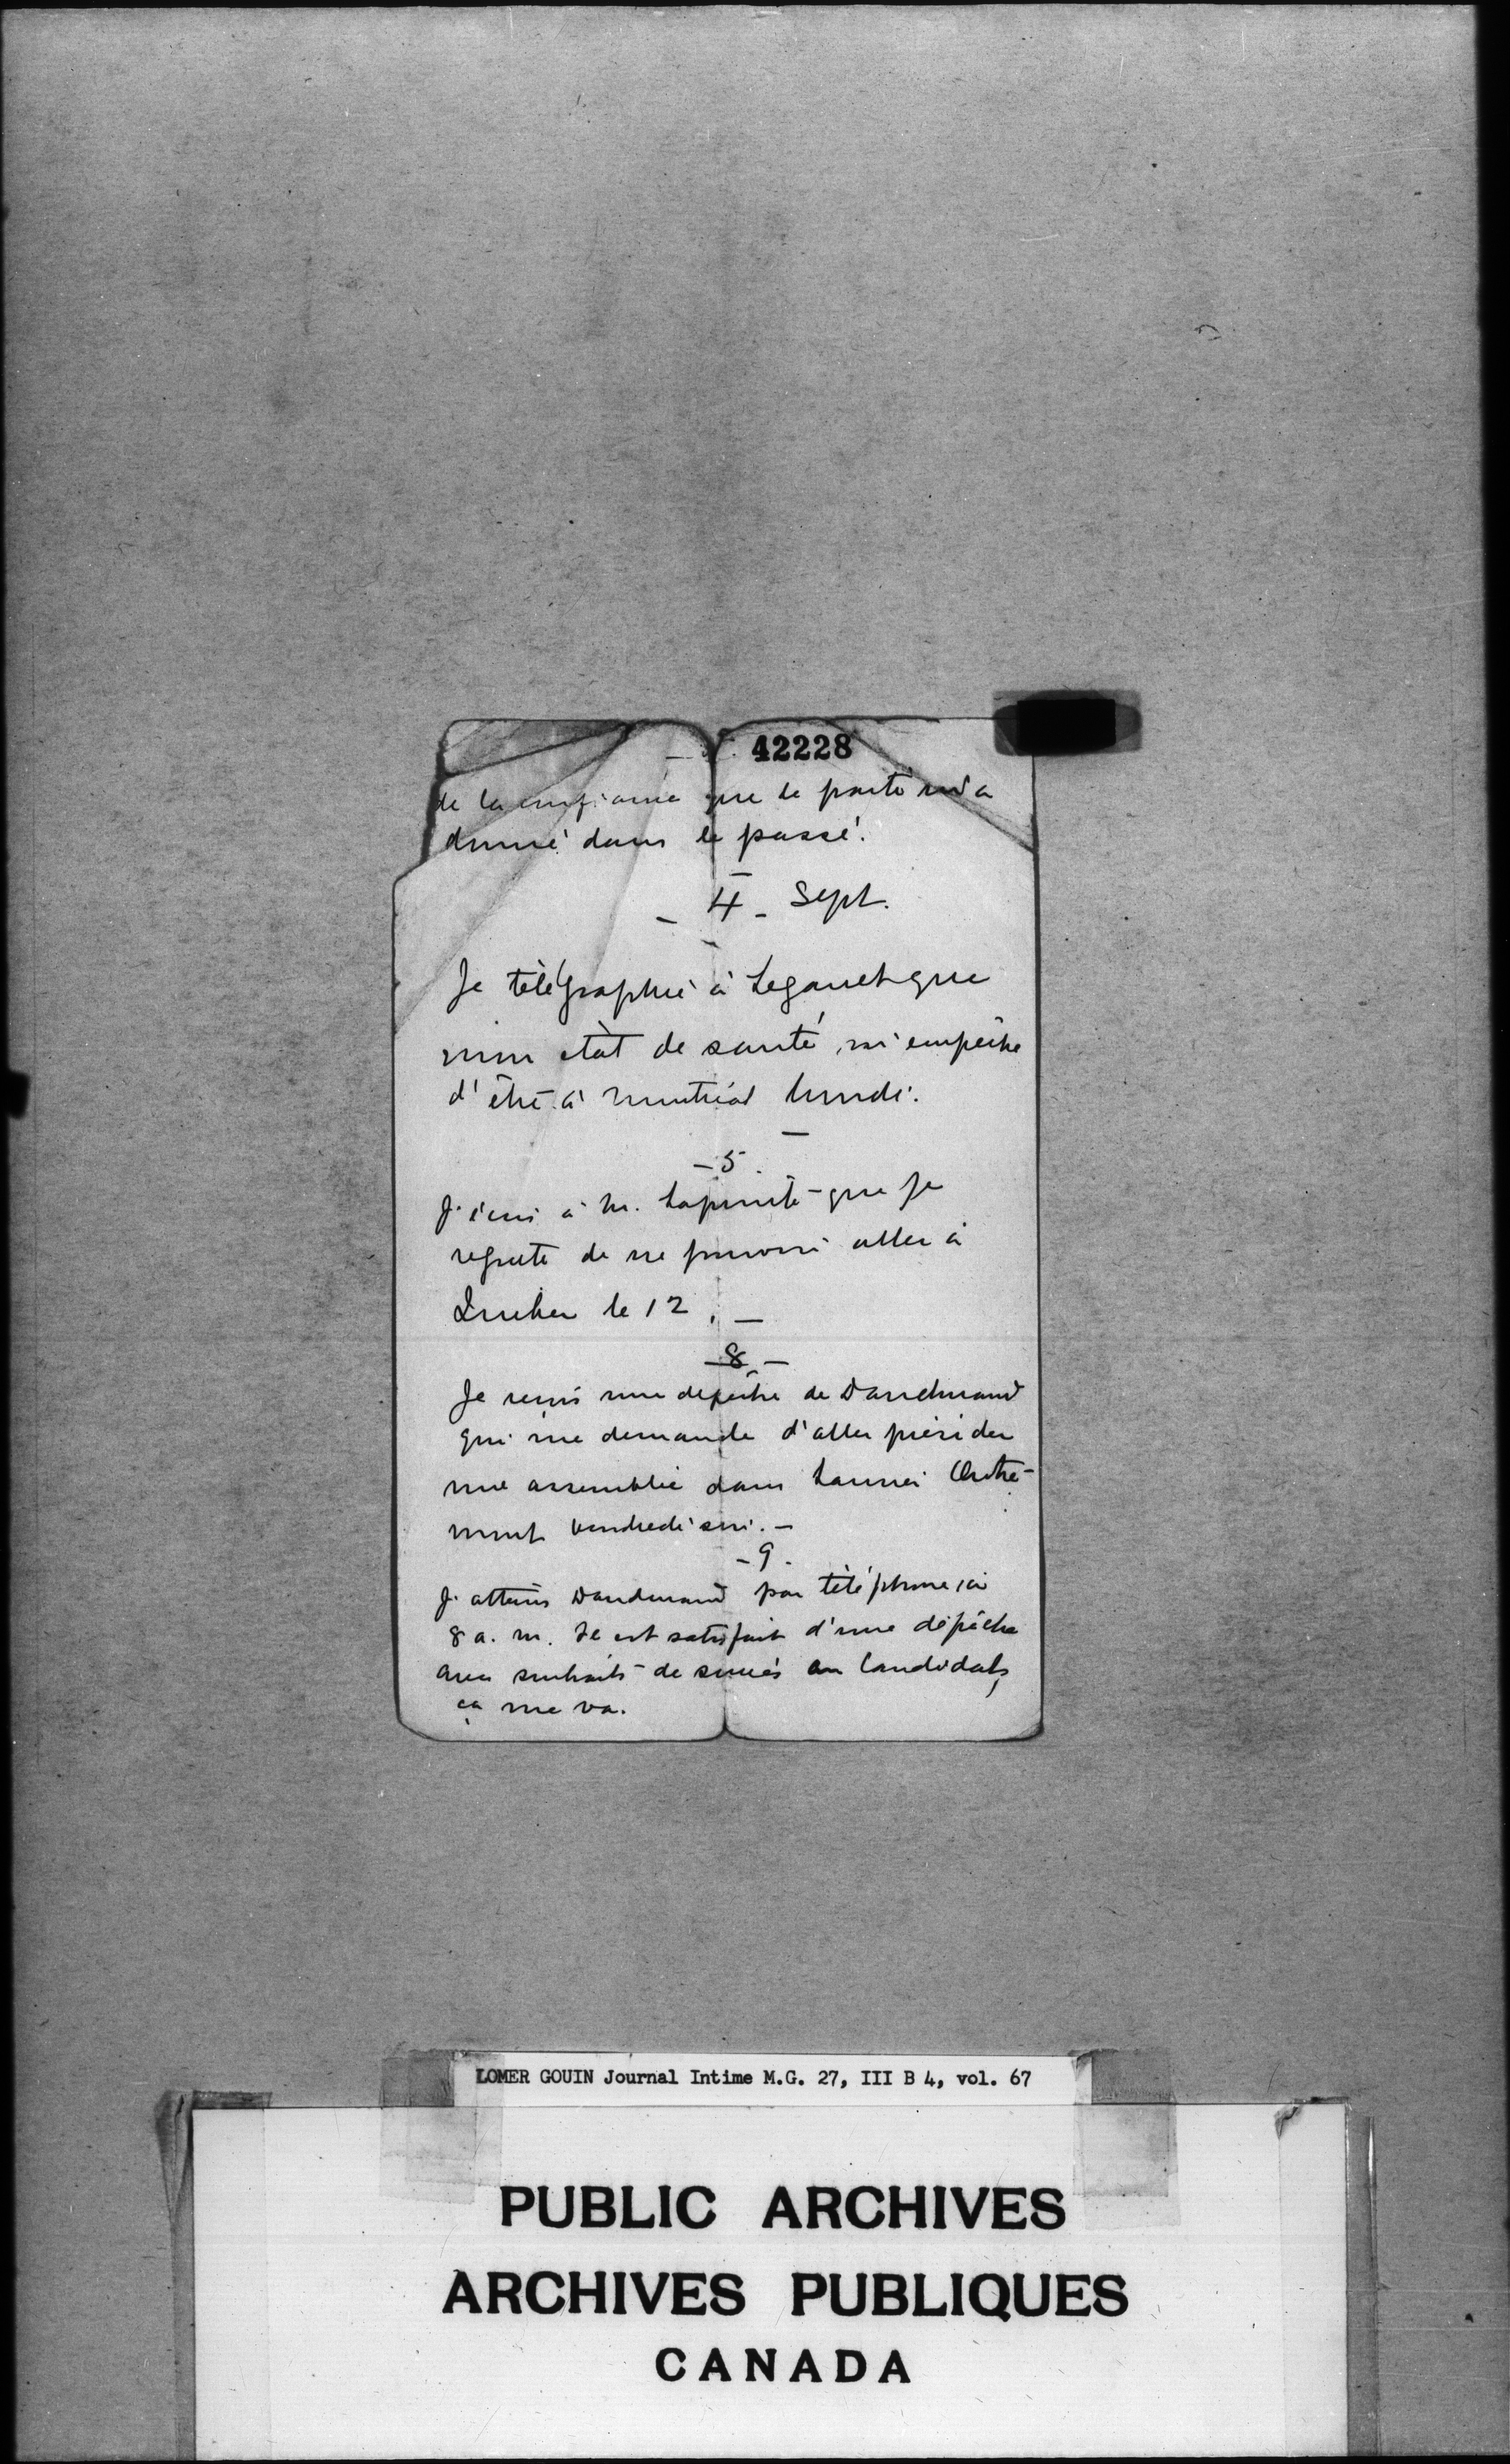 42228
de la confiance que le parti m'a
donné dans le passé.
- 4 - Sept.
Je télégraphie à que
mon état de santé m'empêche
d'être à Montréal lundi.
- 5
J'écris à M. Lapointe que je
regrette de ne pouvoir aller à
Québec le 12. -
- 8 -
Je reçois une depêche de Dandurand
qui me demande d'aller présider
une assemblée dans Laurier Outre-
mont vendredi soir. -
- 9 -
J'atteins Dandurand par téléphone à
8 a. m. Il est satisfait d'une dépêche
avec souhaits de succès au Candidats,
ça me va.
LOMER GOUIN Journal Intime M.G. 27, III B 4, vol. 67
PUBLIC ARCHIVES
ARCHIVES PUBLIQUES
CANADA